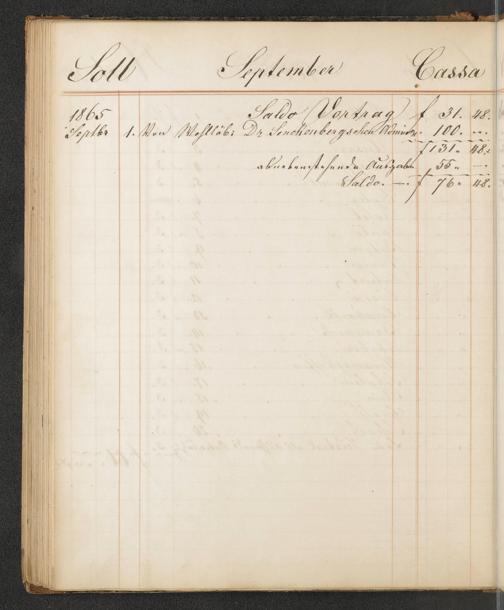 Soll September Cassa
1865 Saldo Vortrag f 31. 48.
Septbr 1. Von Wohllöb: Dr. Senckenbergschen Admin. " 100. —
f 131. 48.
ab nebenstehende Auszahl. " 55. —
Saldo. — f 76. 48.